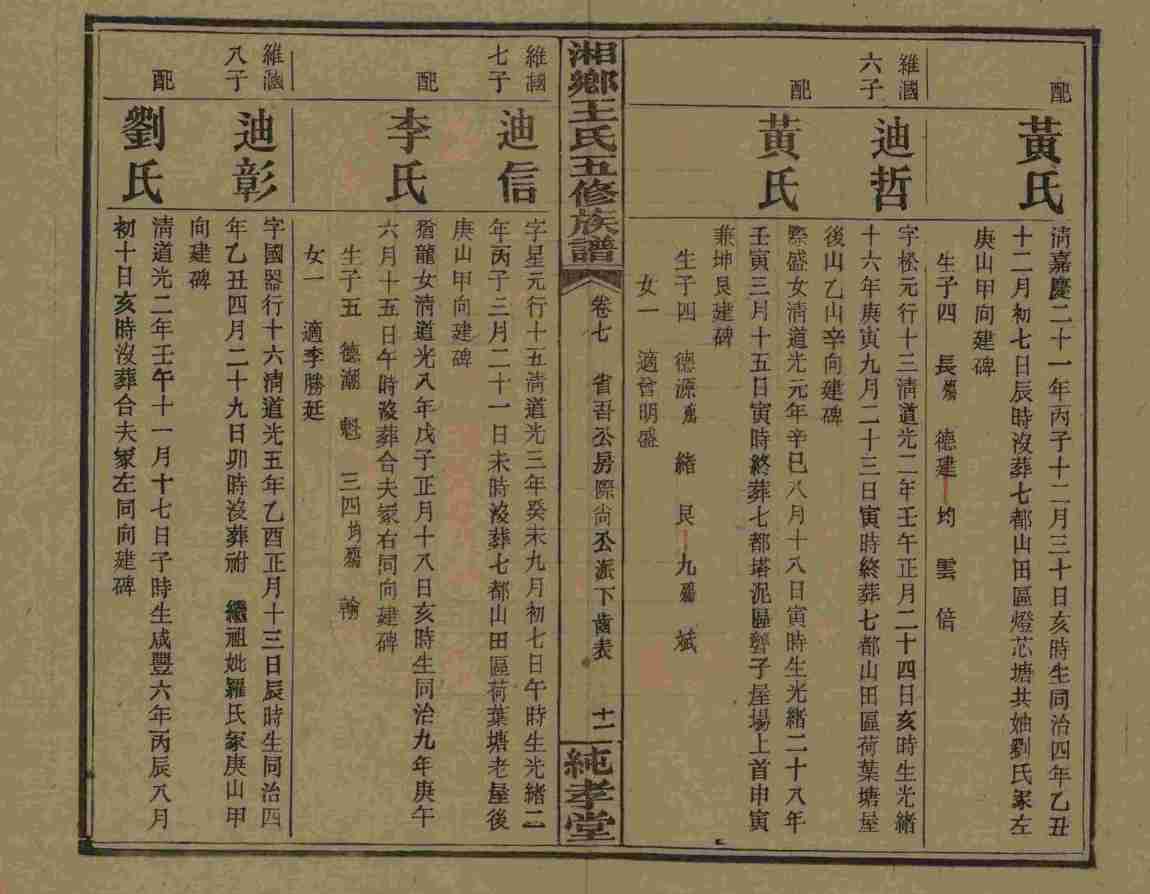 配
黃氏
淸嘉慶二十一年丙子十二月三十日亥時生同治四年乙丑
十二月初七日辰時沒葬七都山田區燈芯塘共妯劉氏冢左
庚山甲向建碑
生子四 長殤 德建 均 雲 倍
維瀾
六子
迪哲
字松元行十三淸道光二年壬午正月二十四日亥時生光緒
十六年庚寅九月二十三日寅時終葬七都山田區荷葉塘屋
後山乙山辛向建碑
配
黃氏
際盛女淸道光元年辛巳八月十八日寅時生光緒二十八年
壬寅三月十五日寅時終葬七都塔泥區礱子屋場上首申寅
兼坤艮建碑
生子四 德源 緒 艮 九殤 斌
女一 適曾明盛
湘鄉王氏五修族譜
卷七 省吾公房際尙公派下齒表 十二
純孝堂
維瀾
七子
迪信
字星元行十五淸道光三年癸未九月初七日午時生光緒二
年丙子三月二十一日未時沒葬七都山田區荷葉塘老屋後
庚山甲向建碑
配
李氏
猶龍女淸道光八年戊子正月十八日亥時生同治九年庚午
六月十五日午時沒葬合夫冢右同向建碑
生子五 德潮 魁 三四均殤 翰
女一 適李勝廷
維瀾
八子
迪彰
字國器行十六淸道光五年乙酉正月十三日辰時生同治四
年乙丑四月二十九日卯時沒葬祔 繼祖妣羅氏冢庚山甲
向建碑
配
劉氏
淸道光二年壬午十一月十七日子時生咸豐六年丙辰八月
初十日亥時沒葬合夫冢左同向建碑